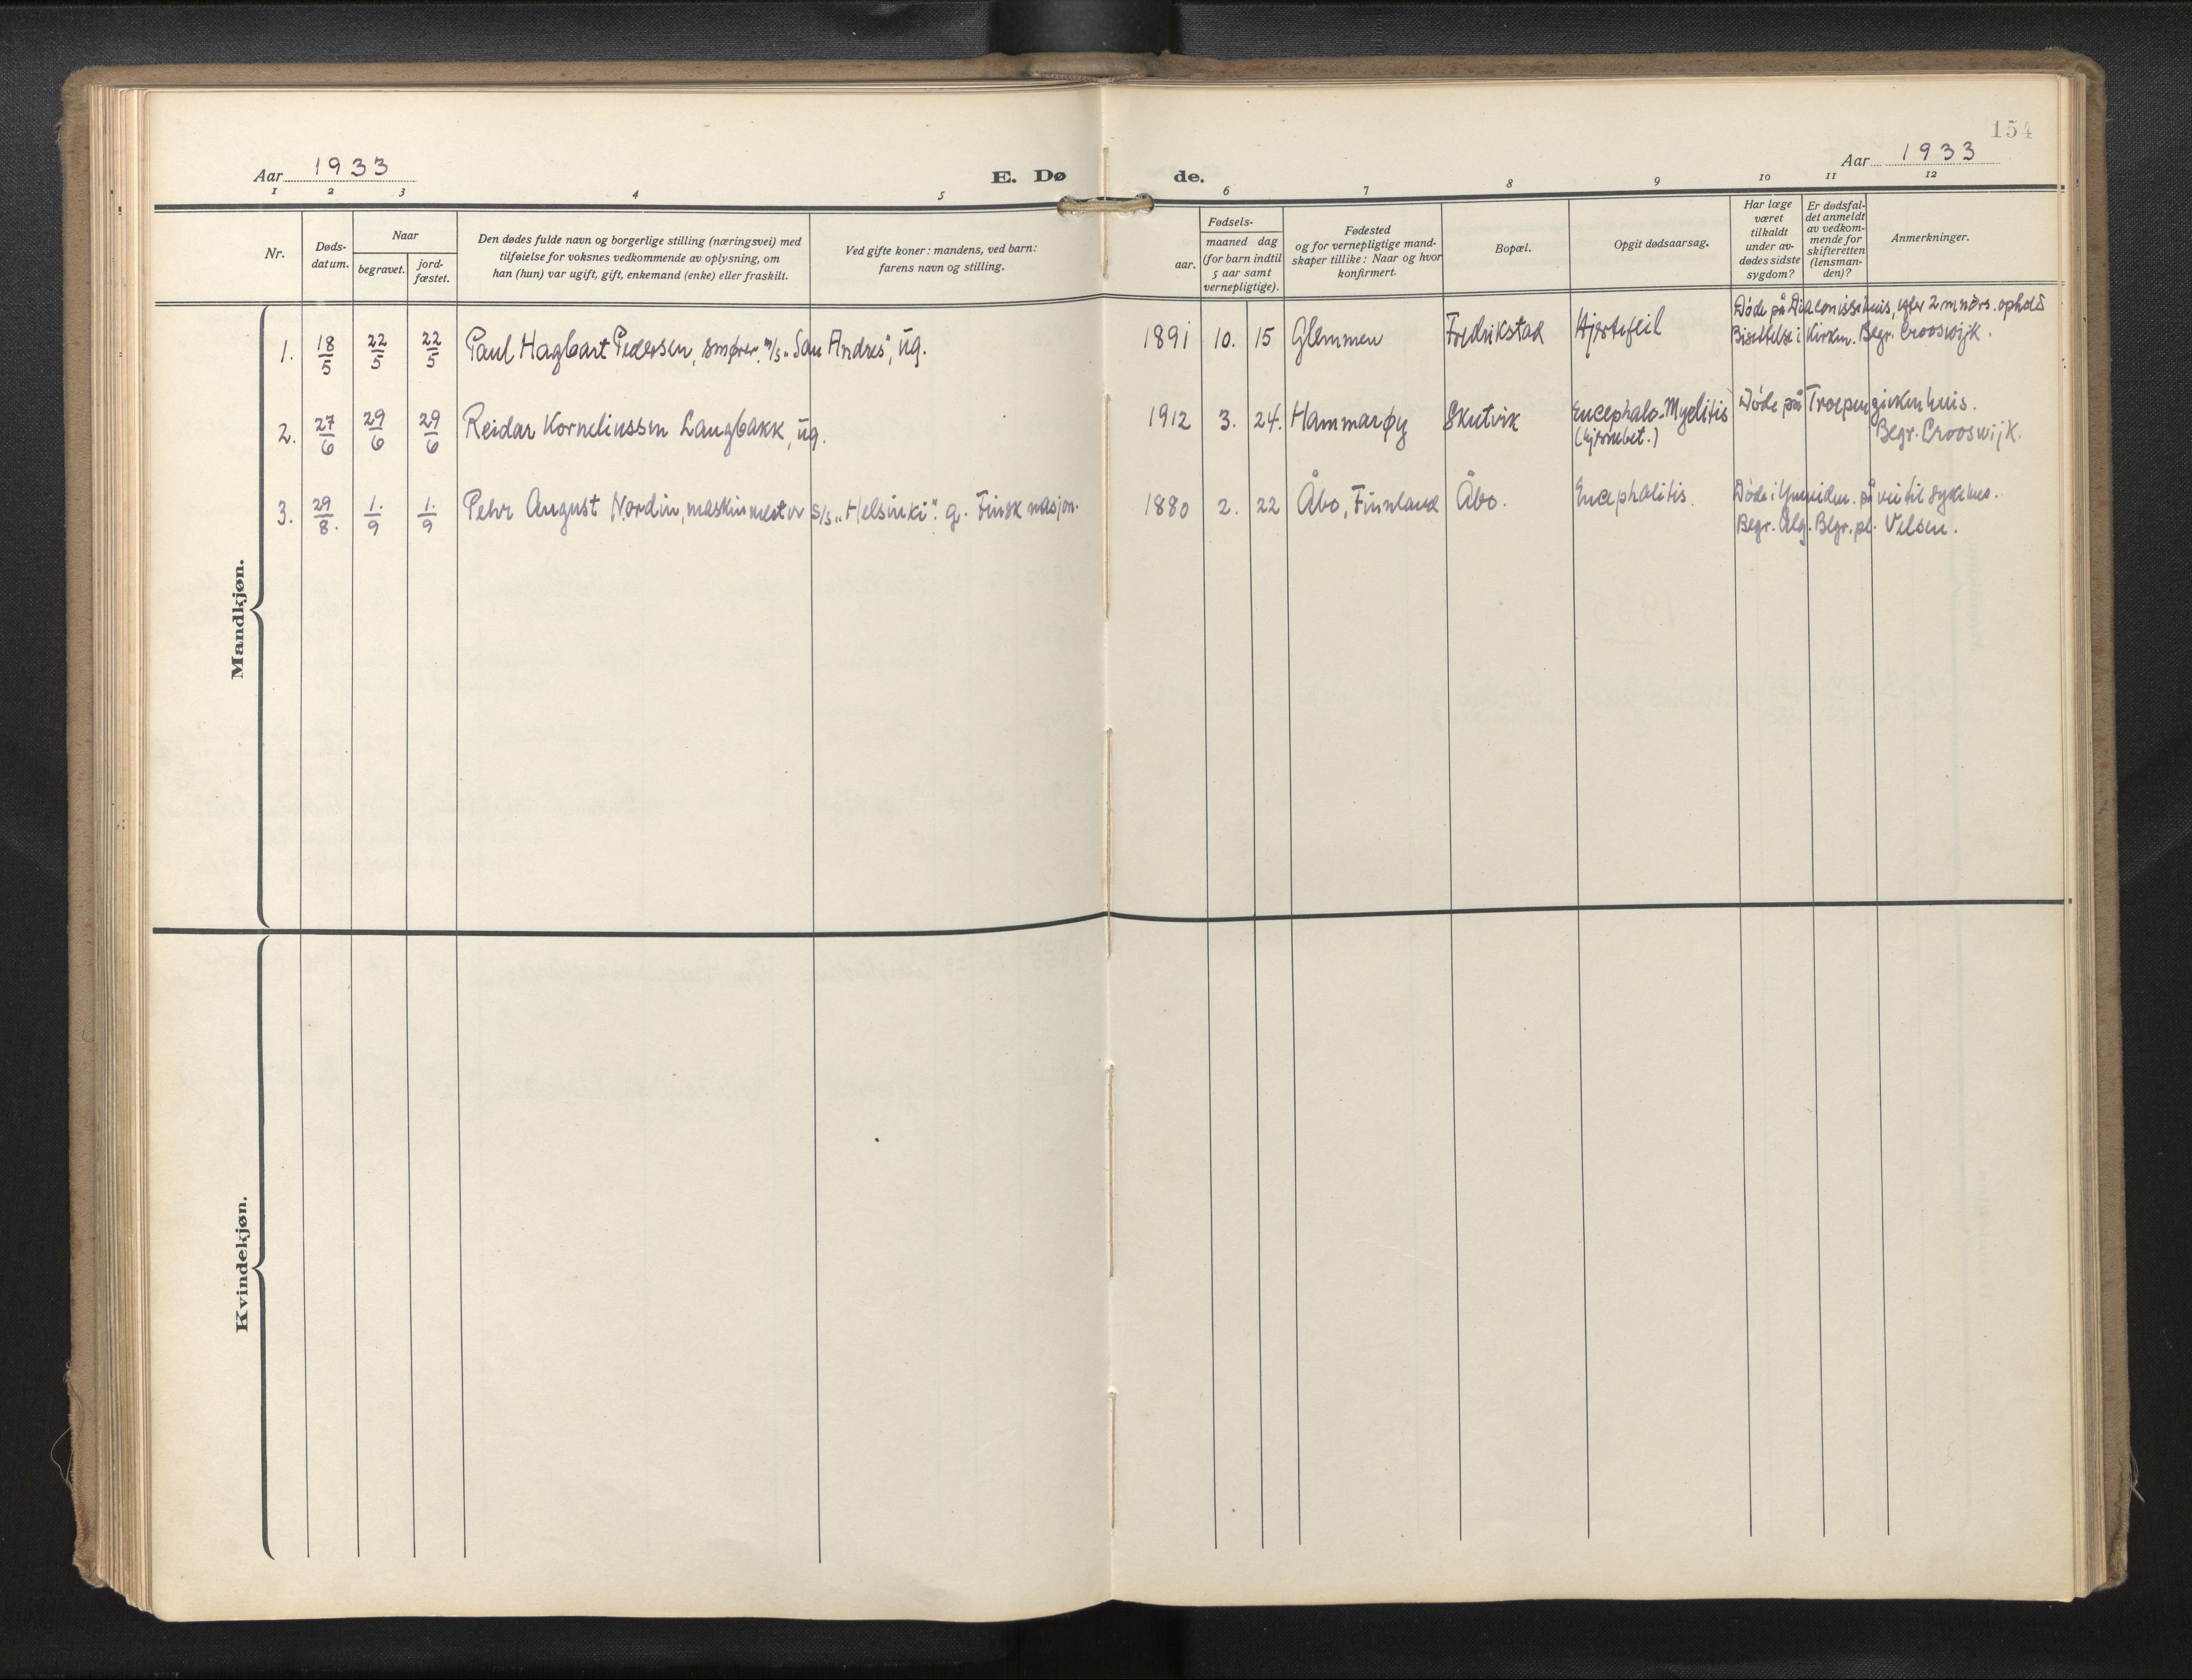 154
Aar 1933
E. Dø de.
Aar 1933
1 2 3 4 5 6 7 8 9 10 11 12
Nr.
Døds-
datum.
Naar
begravet.
jord-
fæstet.
Den dødes fulde navn og borgerlige stilling (næringsvei) med
tilføielse for voksnes vedkommende av oplysning, om
han (hun) var ugift, gift, enkemand (enke) eller fraskilt.
Ved gifte koner: mandens, ved barn:
farens navn og stilling.
Fødsels-
aar.
maaned dag
(for barn indtil
5 aar samt
vernepligtige).
Fødested
og for vernepligtige mand-
skaper tillike: Naar og hvor
konfirmert.
Bopæl.
Opgit dødsaarsag.
Har læge
været
tilkaldt
under av-
dødes sidste
sygdom?
Er dødsfal-
det anmeldt
av vedkom-
mende for
skifteretten
(lensman-
den)?
Anmerkninger.
Mandkjøn.
1. 18/5 22/5 22/5 Paul Hagbart Pedersen, smører, M/S "San Andres", ug. 1891 10. 15 Glemmen Fredrikstad Hjertefeil Døde på Diakonissehuis, efter 2 mndrs. ophold
Bisettelse i Kirken. Begr. Crooswijk.
2. 27/6 29/6 29/6 Reidar Korneliussen Langbakk, ug. 1912 3. 24. Hammarøy Skutvik Encephalo-Myelitis Døde på Troepenzikenhuis.
(hjernebet.) Begr. Crooswijk.
3. 29/8. 1./9 1./9 Pehr August Nordin, maskinmester S/S "Helsinki". g. Finsk nasjon. 1880 2. 22 Åbo, Finnland Åbo. Encephalitis. Døde i Ymuiden. på vei til sykehus.
Begr. Alg. Begr. pl. Velsen.
Kvindekjøn.